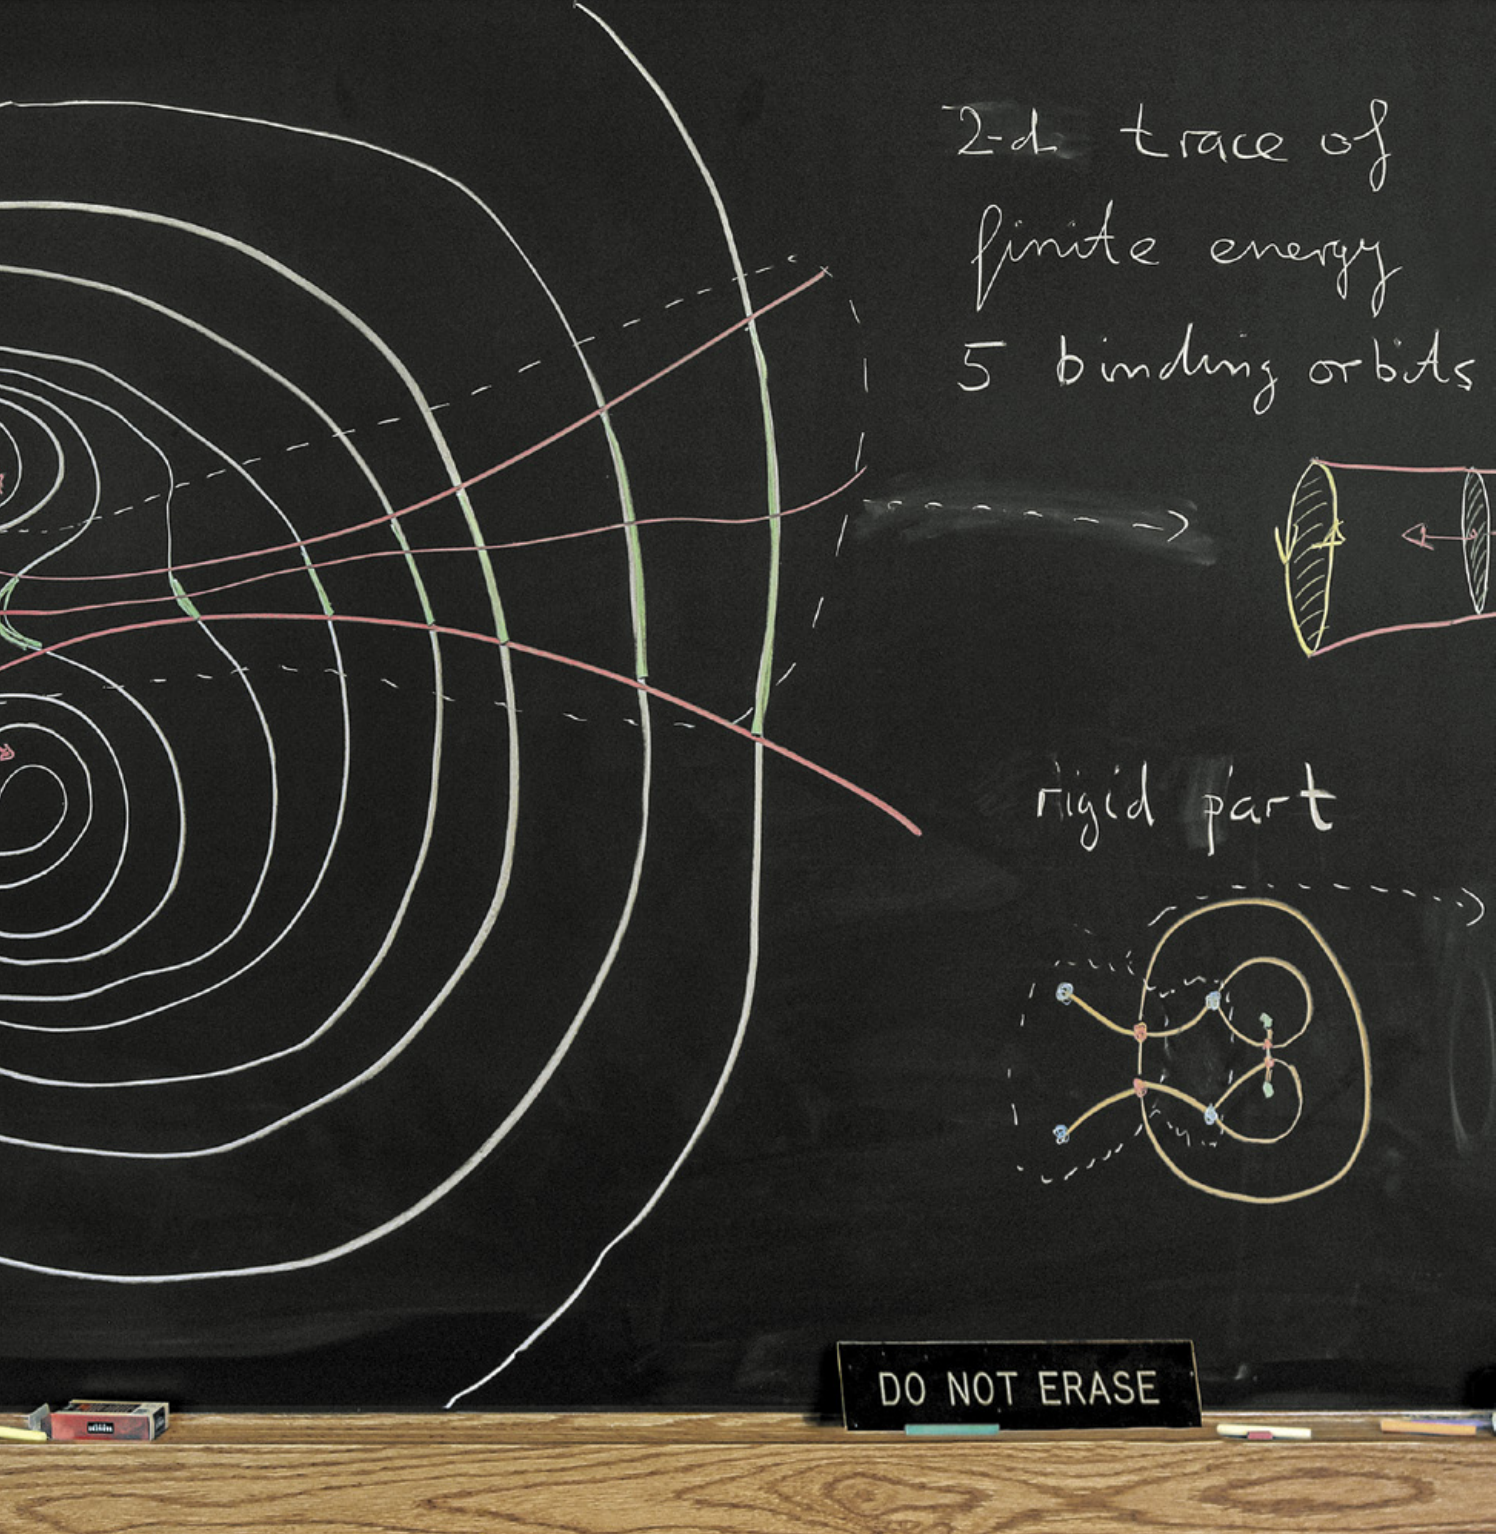 2-d trace of
finite energy
5 binding orbits
rigid part
DO NOT ERASE